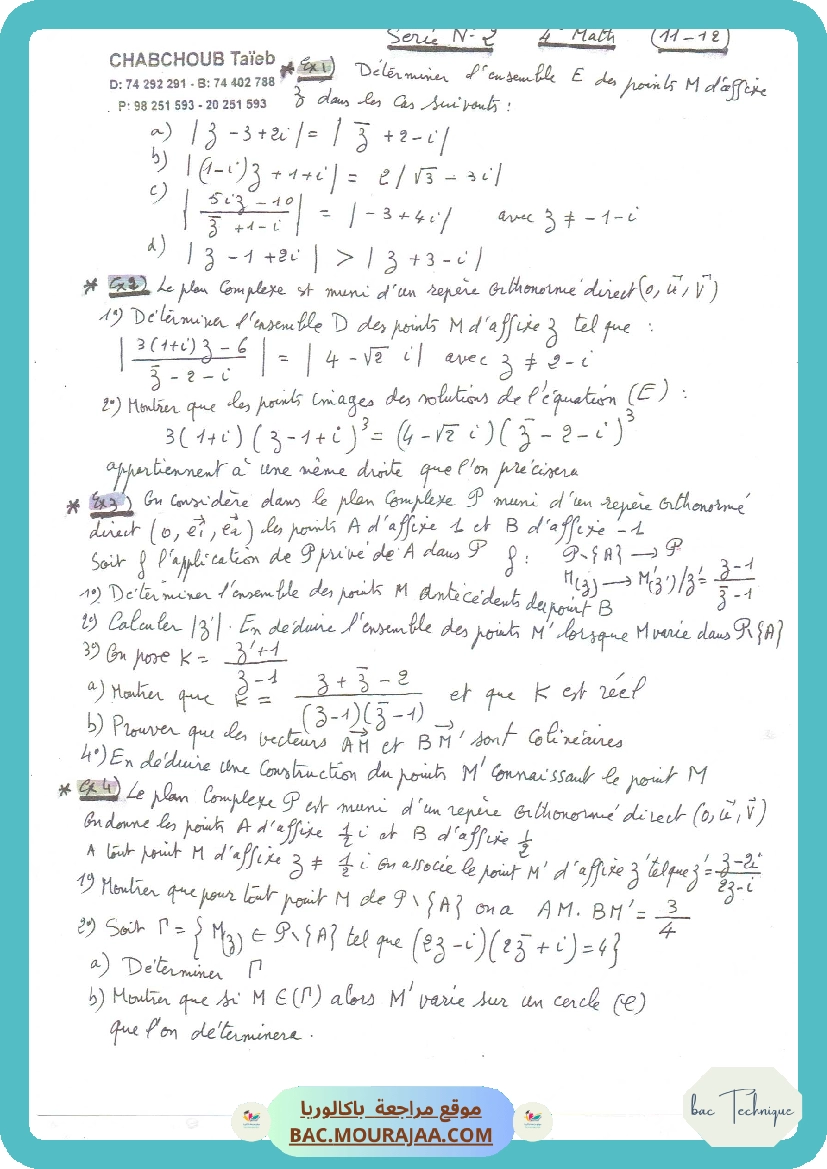 Serie N-2 4° Math (11-12)
CHABCHOUB Taïeb
D: 74 292 291 - B: 74 402 788
P: 98 251 593 - 20 251 593
* Ex1) Déterminer l'ensemble E des points M d'affixe
z dans les cas suivants :
a) |z - 3 + 2i| = |z̅ + 2 - i|
b) |(1-i)z + 1 + i| = 2|√3 - 3i|
c) |(5iz - 10)/(z̅ + 1 - i)| = |-3 + 4i| avec z ≠ -1 - i
d) |z - 1 + 2i| > |z + 3 - i|
* Ex2) Le plan complexe st muni d'un repère orthonormé direct (o, u⃗, v⃗)
1°) Déterminer l'ensemble D des points M d'affixe z tel que :
|(3(1+i)z - 6)/(z̅ - 2 - i)| = |4 - √2 i| avec z ≠ 2 - i
2°) Montrer que les points images des solutions de l'équation (E) :
3(1+i)(z - 1 + i)³ = (4 - √2 i)(z̅ - 2 - i)³
appartiennent à une même droite que l'on précisera
* Ex3) On considère dans le plan complexe P muni d'un repère orthonormé
direct (o, e⃗₁, e⃗₂) les points A d'affixe 1 et B d'affixe -1
Soit f l'application de P privé de A dans P f : P\{A} → P
M(z) → M'(z')/z' = (z - 1)/(z̅ - 1)
1°) Déterminer l'ensemble des points M antécédents du point B
2°) Calculer |z'|. En déduire l'ensemble des points M' lorsque M varie dans P\{A}
3°) On pose K = (z' + 1)/(z - 1)
a) Montrer que K = (z + z̅ - 2)/((z - 1)(z̅ - 1)) et que K est réel
b) Prouver que les vecteurs AM⃗ et BM'⃗ sont colinéaires
4°) En déduire une construction du points M' connaissant le point M
* Ex4) Le plan complexe P est muni d'un repère orthonormé direct (o, u⃗, v⃗)
On donne les points A d'affixe 1/2 i et B d'affixe 1/2
A tout point M d'affixe z ≠ 1/2 i on associe le point M' d'affixe z' tel que z' = (z - 2i)/(2z - i)
1°) Montrer que pour tout point M de P\{A} on a AM. BM' = 3/4
2°) Soit Γ = {M(z) ∈ P\{A} tel que (2z - i)(2z̅ + i) = 4}
a) Déterminer Γ
b) Montrer que si M ∈ (Γ) alors M' varie sur un cercle (C)
que l'on déterminera.
bac Technique
موقع مراجعة باكالوريا
BAC.MOURAJAA.COM